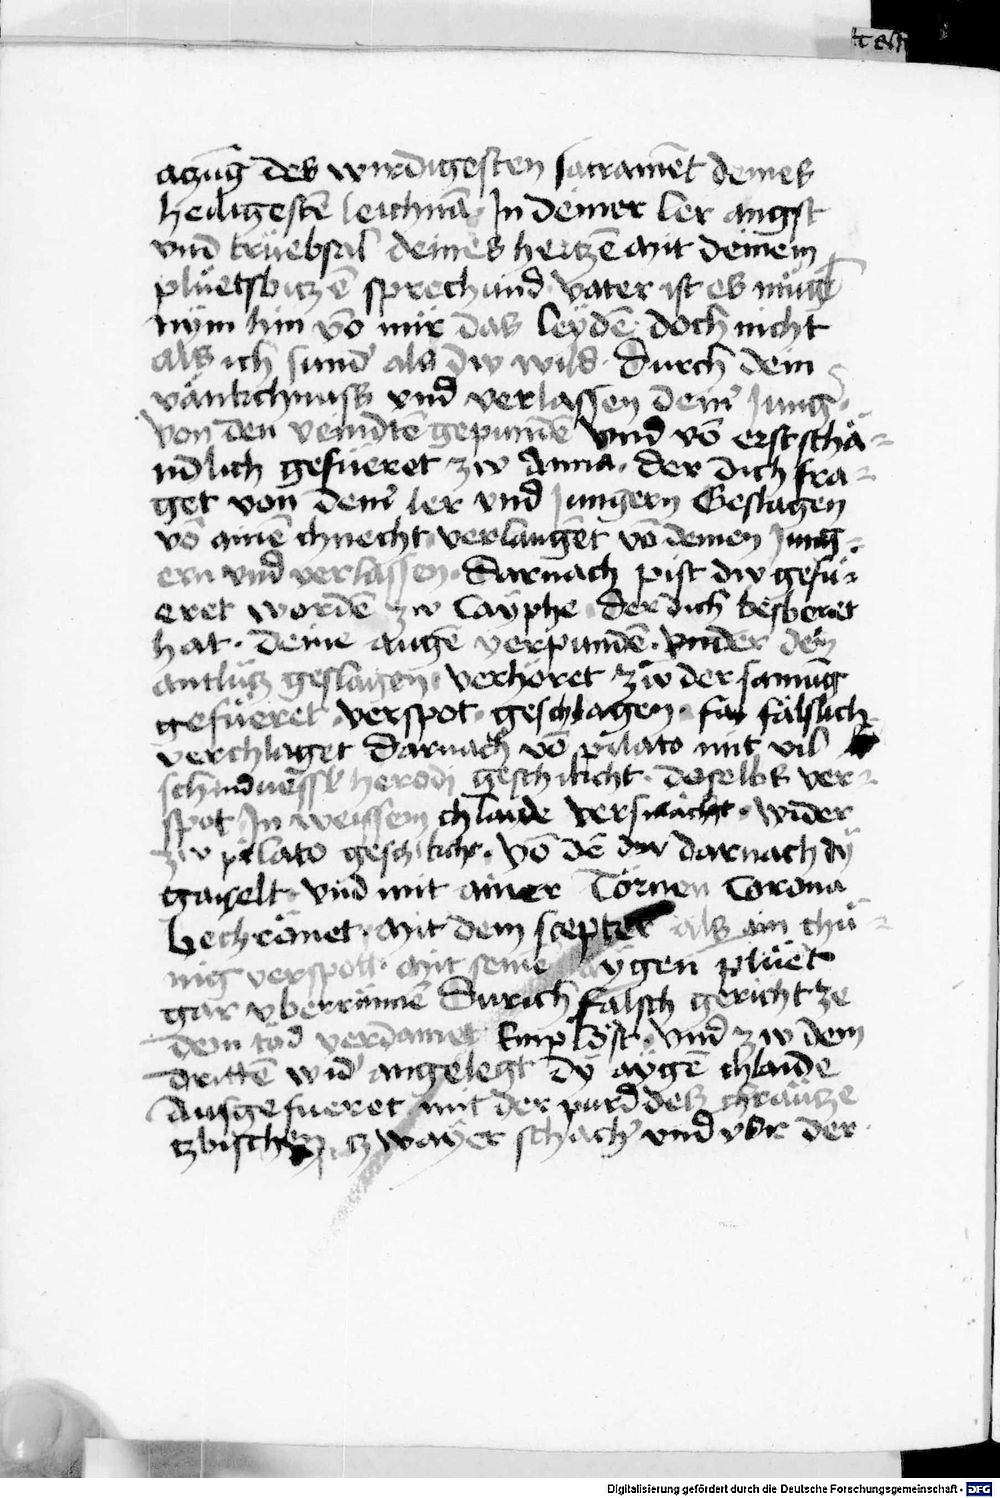 azūg des wirdigesten sacramēt deines
heiligestē leichnā. In deiner ler angst
vnd trüebsal deines hertzē mit deinem
plüetsbitzē sprechund. vater ist es mügē
nÿm hin vō mir das leÿdē. doch nicht
als ich sund' als dw wild. durch dein
vänkchnuss vnd verlassen dein' Jung.
von den veindtē gepundē vnd vō erst schä-
ndlich gefueret zw Anna. der dich fra-
get von dein' ler vnd Jungern Geslagen
vō ainē chnecht verlaugēt vō deinen Jung-
ern vnd verlassen. darnach pist dw gefü-
eret wordē zw Caÿphe. der dich besboret
hat. deine augē verpundē. vnder dein
antlütz geslagen. verhöret zw der samūg
gefüeret. verspot. geschlagen. fälslich
verchlaget darnach vō pilato mit vil
herodi geschikcht. deselbs ver-
spot In weissem chlaide versmächt. wider
zw pilato geschikcht. vō dē dw darnach dÿ
gaiselt. vnd mit ainer Törnen Corona
bechrönet. mit dem scepter als ain chü-
nig verspott. mit seinē aÿgen plüet
gar vberrunnē Durich falsch gericht ze
dem töd verdamet Emplöst. vnd zw dem
drittē wid' angelegt dÿ aÿgē chlaide
Ausgefueret mit der purd des chräutze
tzbischen tzwaÿer schach' vnd vbr der
Digitalisierung gefördert durch die Deutsche Forschungsgemeinschaft - DFG